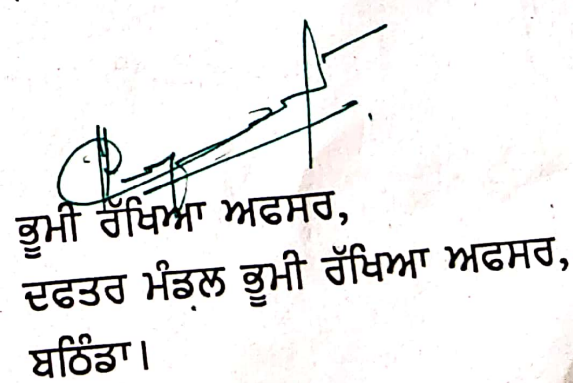 ਭੂਮੀ ਰੱਖਿਆ ਅਫਸਰ,
ਦਫਤਰ ਮੰਡਲ ਭੂਮੀ ਰੱਖਿਆ ਅਫਸਰ,
ਬਠਿੰਡਾ।